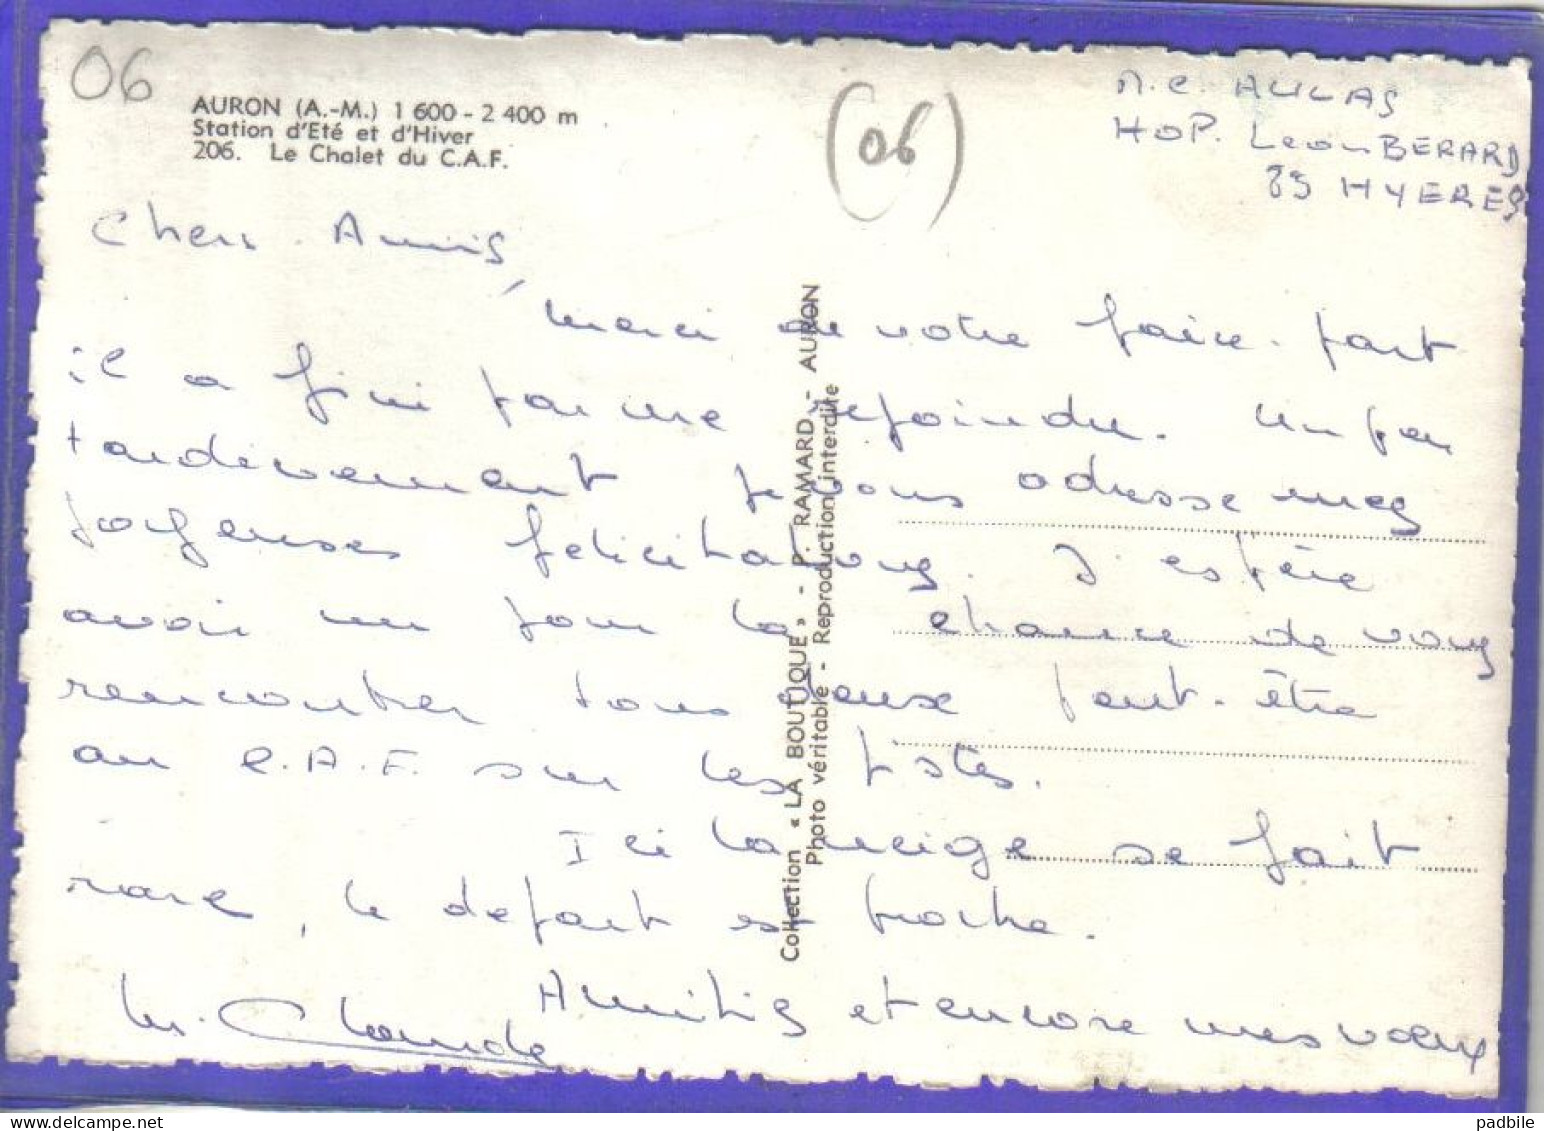 06
AURON (A.-M.) 1 600 - 2 400 m
Station d'Eté et d'Hiver
206. Le Chalet du C.A.F.
(06)
M.C. AULAS
HOP. Leon BERARD
83 HYERES
Chers Amis,
merci de votre faire-part
il a fini par me rejoindre. Un peu
tardivement je vous adresse mes
joyeuses felicitations. J'espère
avoir un jour la chance de vous
rencontrer tous deux peut-être
au C.A.F. sur les pistes.
Ici la neige se fait
rare, le depart est proche.
Amitiés et encore mes voeux
M. Claude
Collection « LA BOUTIQUE » - P. RAMARD - AURON
Photo véritable - Reproduction interdite
padbile @ delcampe.net